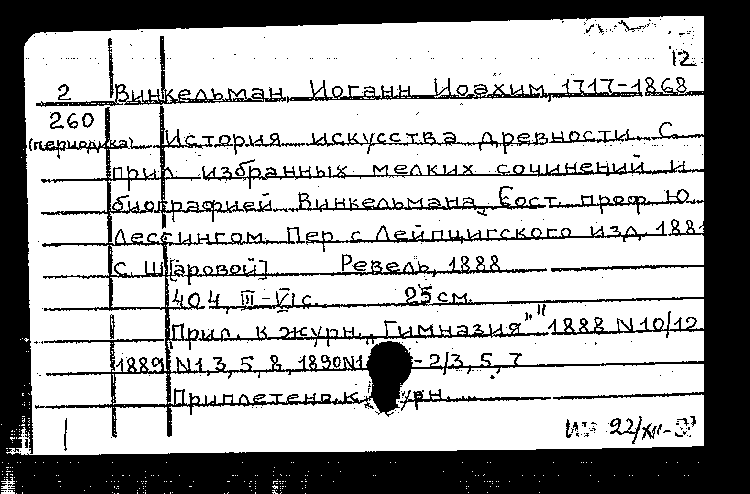 12
2 Винкельман, Иоганн Иоахим, 1717-1868
260
(периодика) История искусства древности. С
прил. избранных мелких сочинений и
биографией Винкельмана, Сост. проф. Ю.
Лессингом. Пер. с Лейпцигского изд. 1881
С. Ш[аровой] Ревель, 1888
404, III-VI с. 25 см.
Прил. к журн. „Гимназия" 1888 N10/12
1889 N1, 3, 5, 8, 1890 N1 - 2/3, 5, 7
Приплетено к журн.
22/XII-